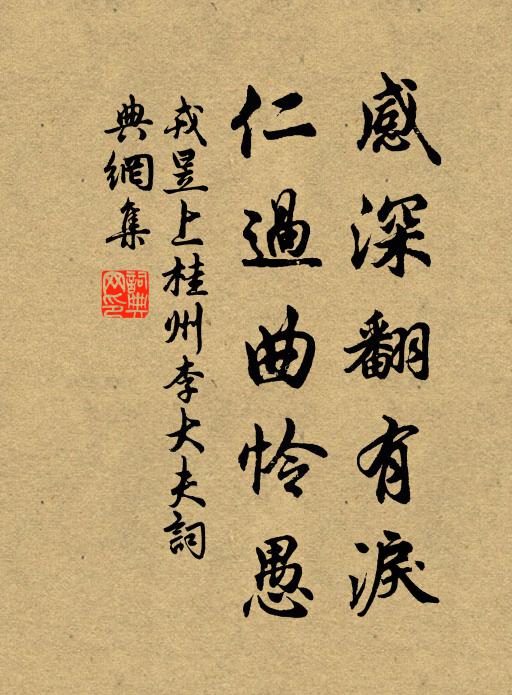 感深翻有淚
仁過曲憐愚
戎昱上桂州李大夫詞
典網集
詞典網印